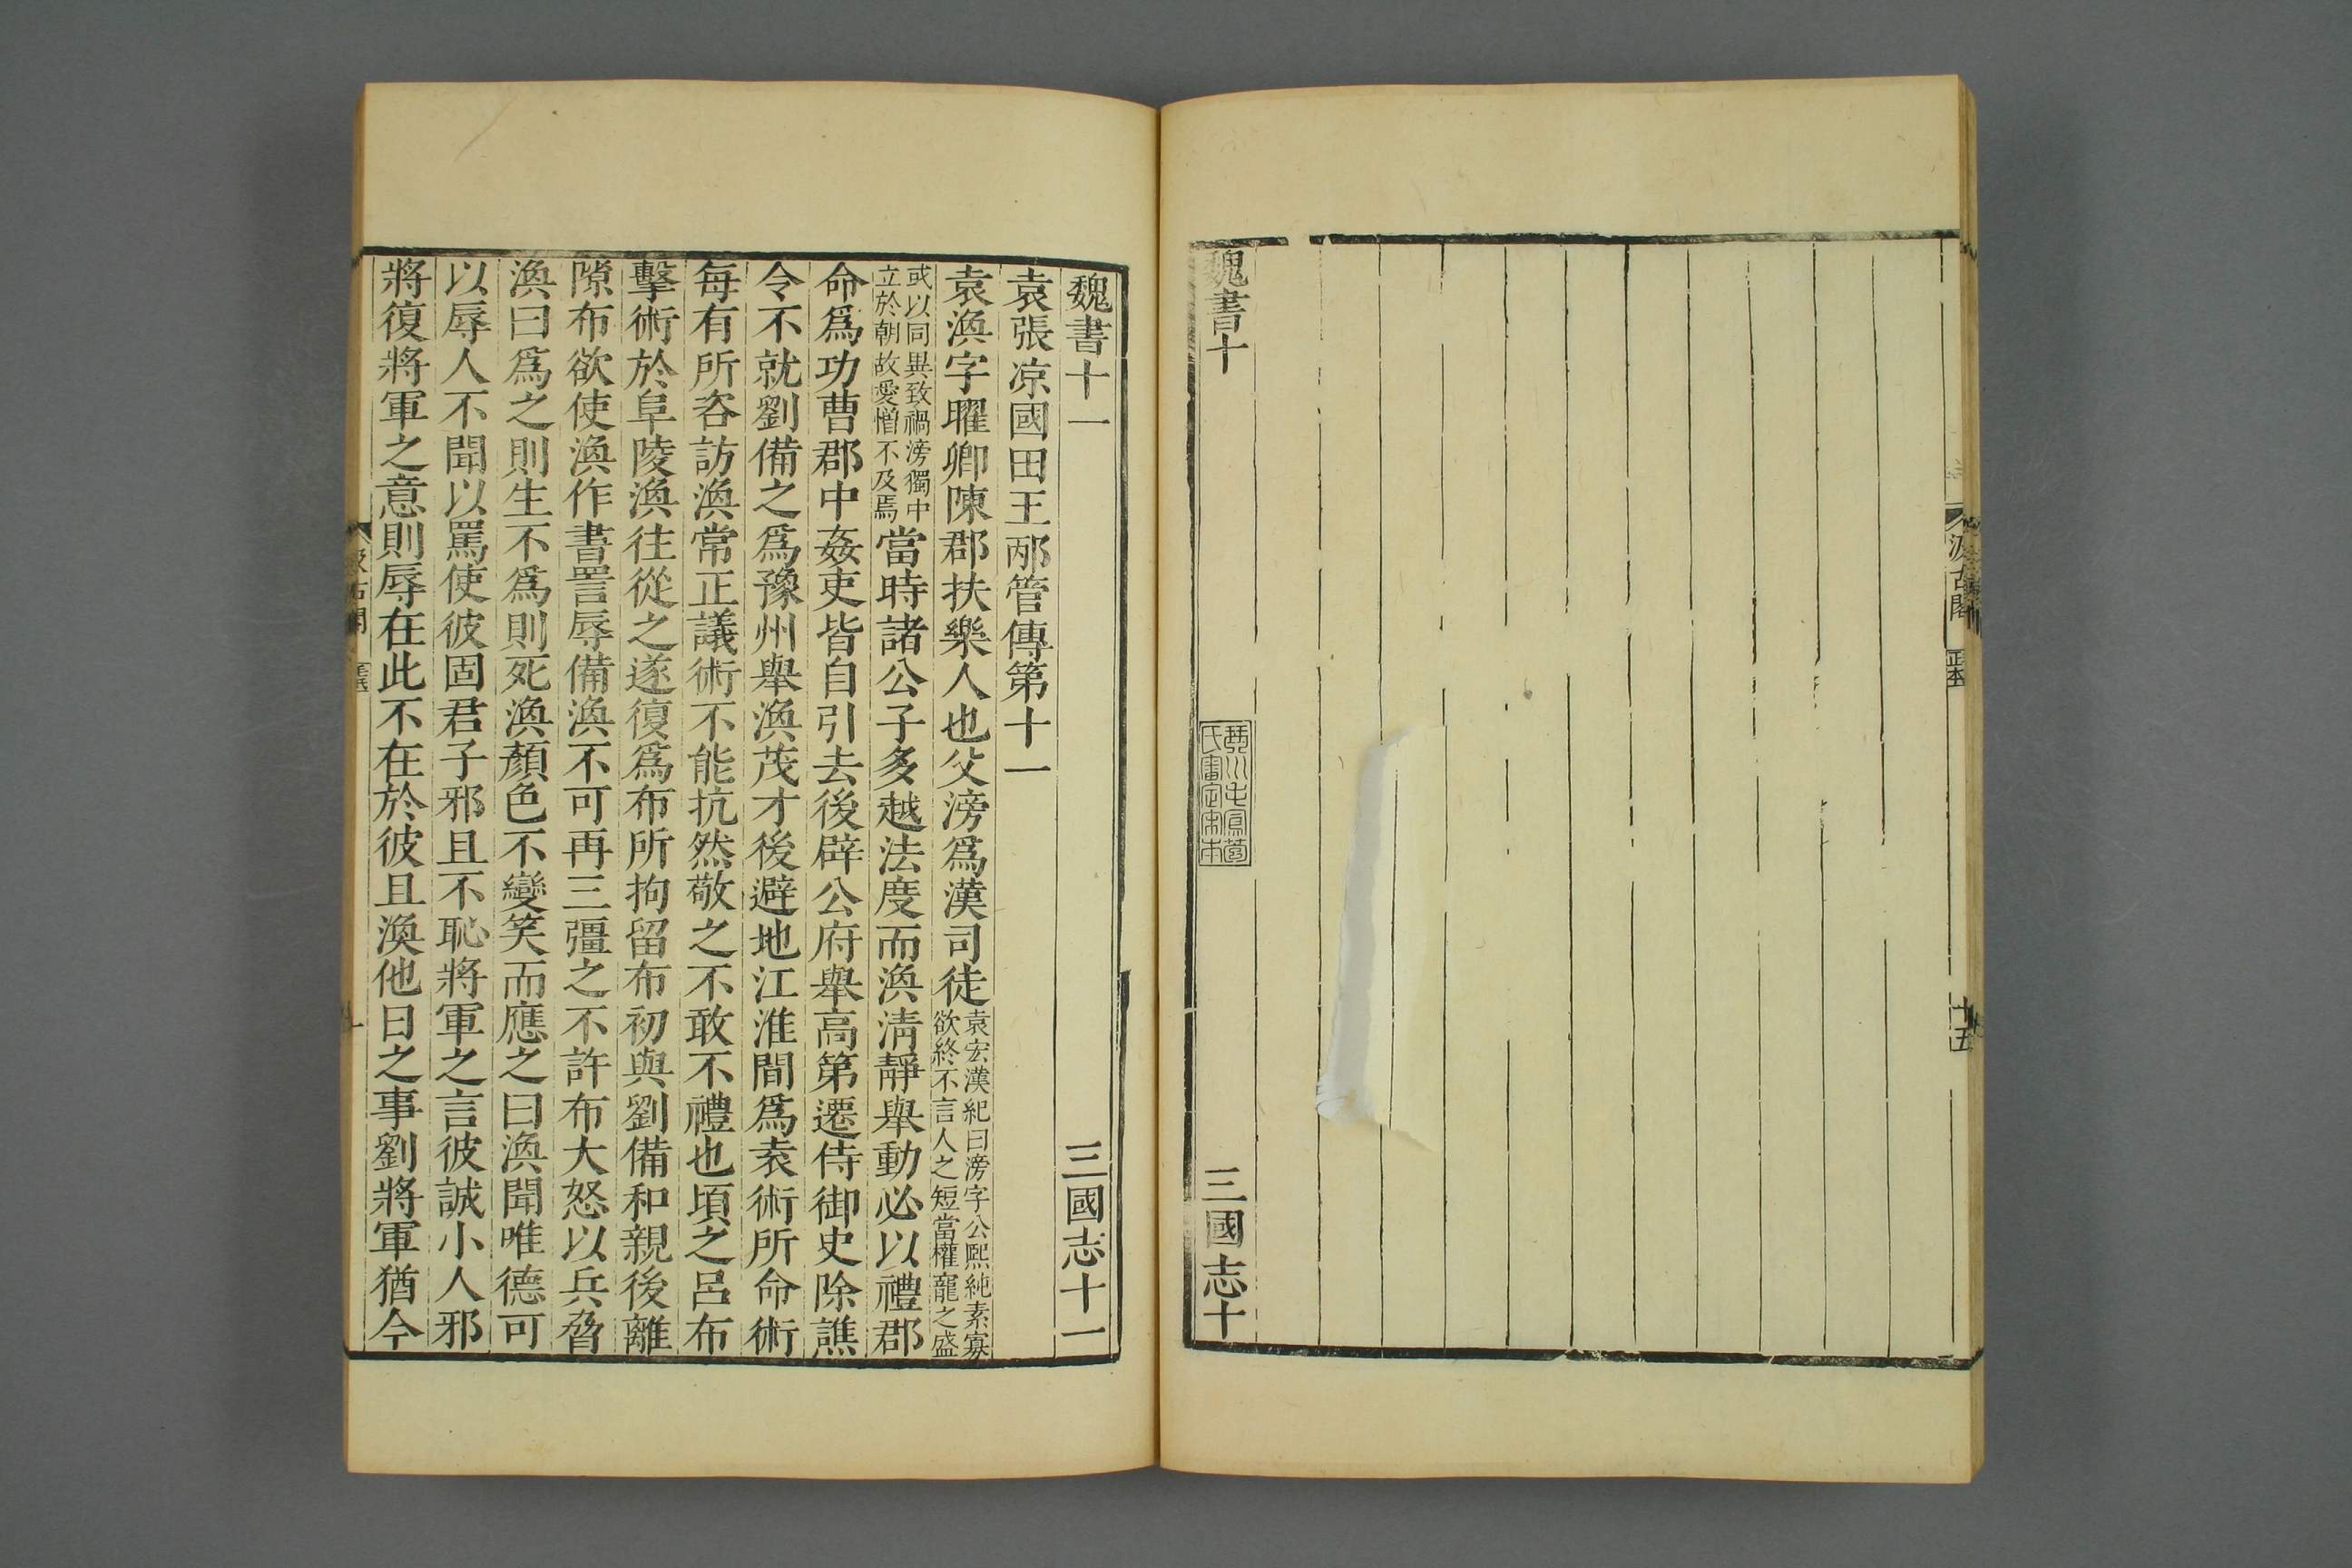 汲古閣
正本
十五
魏書十
琴川毛鳳苞
氏審定宋本
三國志十
魏書十一
三國志十一
袁張凉國田王邴管傳第十一
袁渙字曜卿陳郡扶樂人也父滂爲漢司徒
袁宏漢紀曰滂字公熙純素寡
欲終不言人之短當權寵之盛
或以同異致禍滂獨中
立於朝故愛憎不及焉
當時諸公子多越法度而渙清靜舉動必以禮郡
命爲功曹郡中姦吏皆自引去後辟公府舉高第遷侍御史除譙
令不就劉備之爲豫州舉渙茂才後避地江淮間爲袁術所命術
每有所咨訪渙常正議術不能抗然敬之不敢不禮也頃之呂布
擊術於阜陵渙往從之遂復爲布所拘留布初與劉備和親後離
隙布欲使渙作書詈辱備渙不可再三彊之不許布大怒以兵脅
渙曰爲之則生不爲則死渙顏色不變笑而應之曰渙聞唯德可
以辱人不聞以罵使彼固君子邪且不恥將軍之言彼誠小人邪
將復將軍之意則辱在此不在於彼且渙他日之事劉將軍猶今